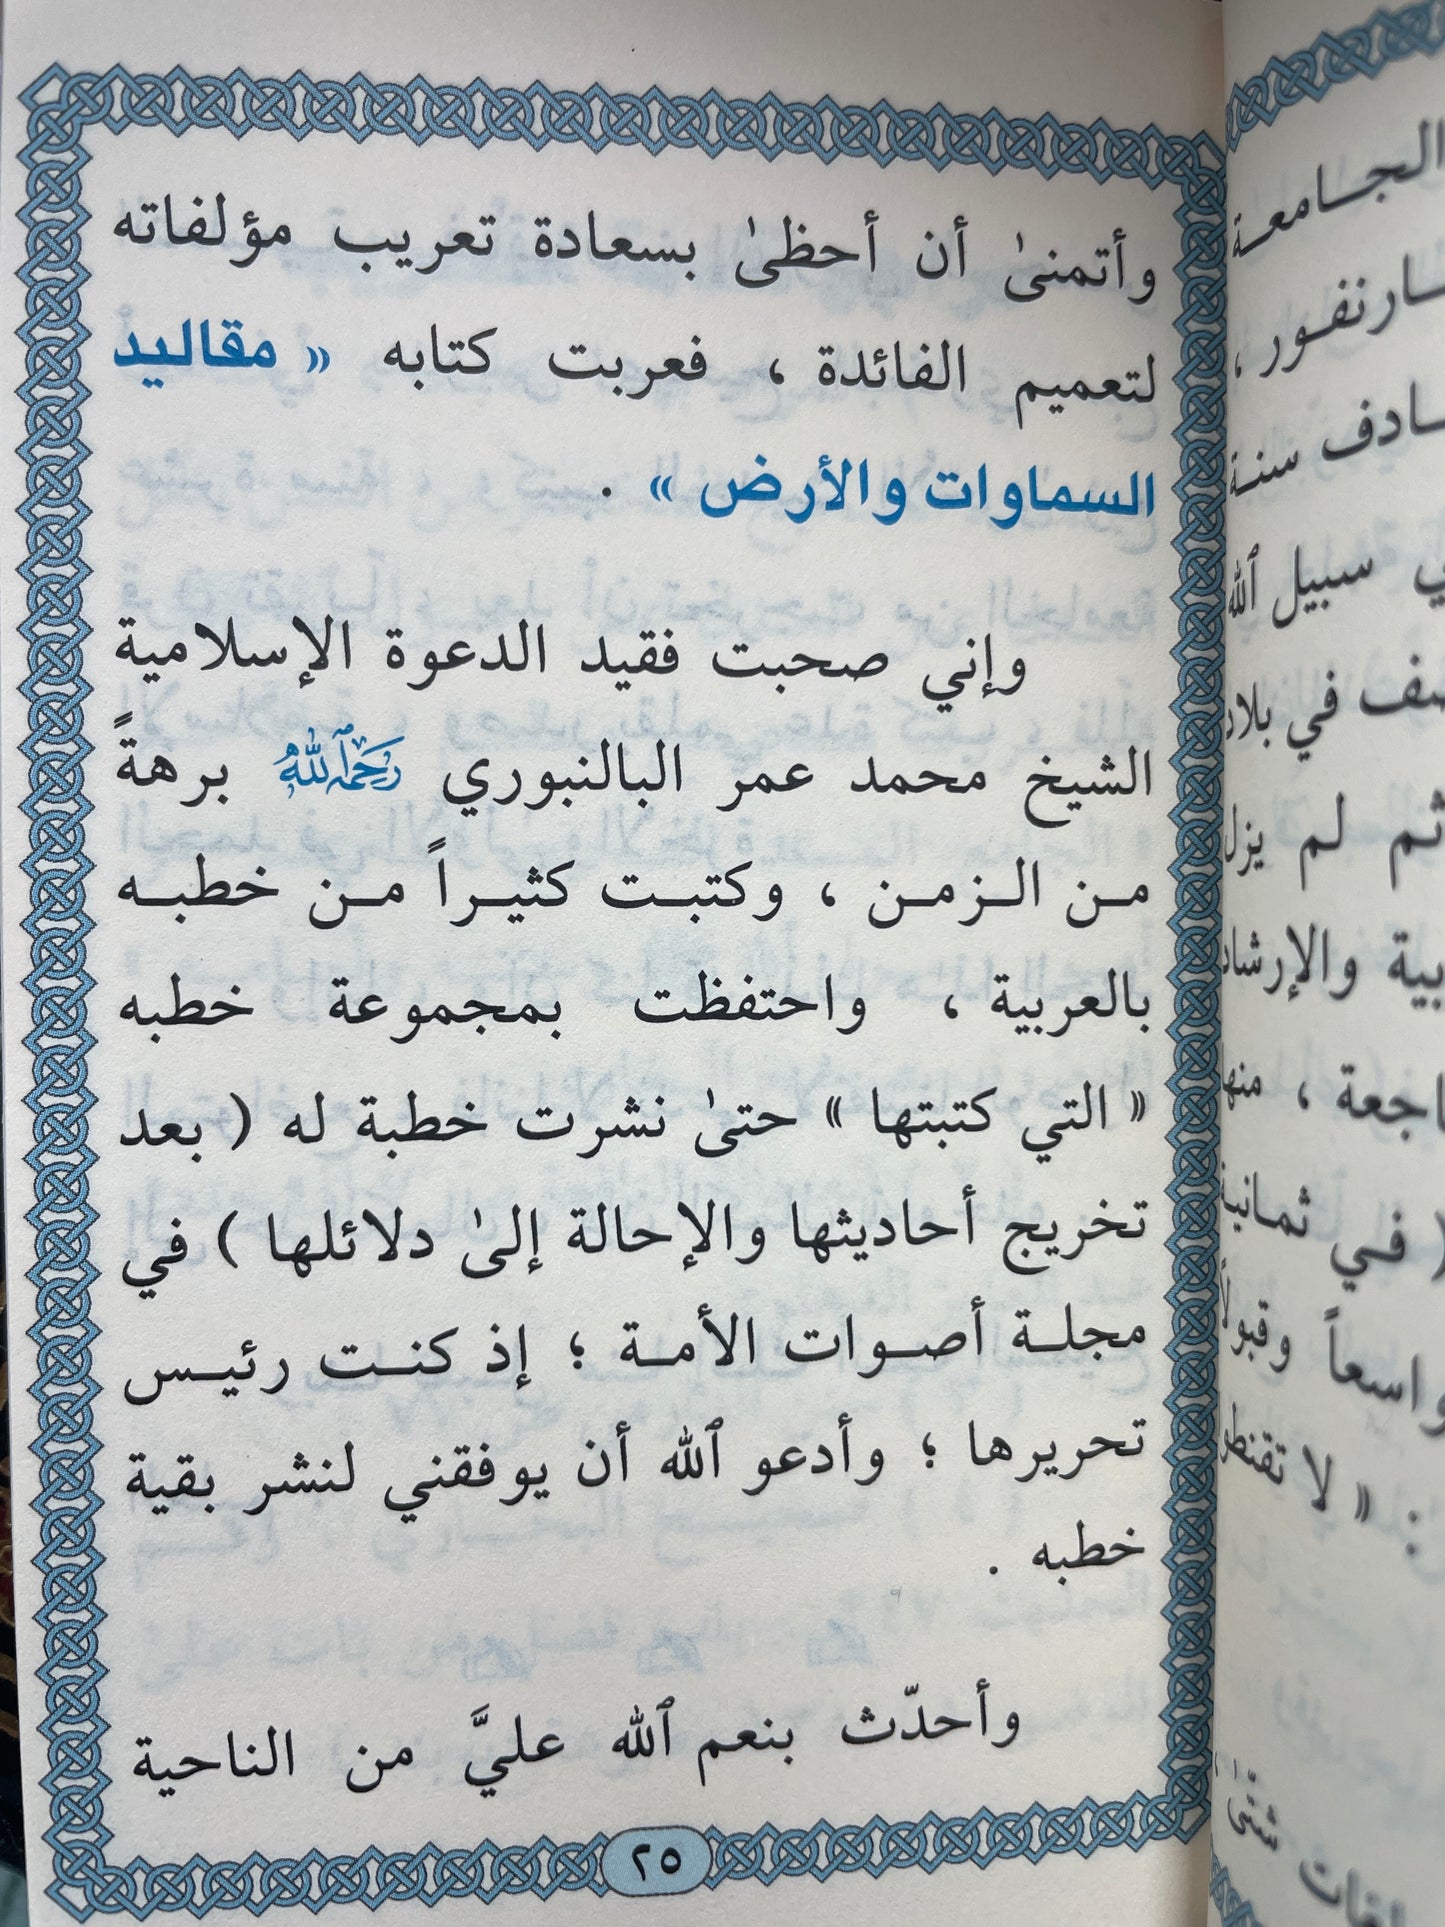 وأتمنىٰ أن أحظىٰ بسعادة تعريب مؤلفاته
لتعميم الفائدة ، فعربت كتابه « مقاليد
السماوات والأرض » .
وإني صحبت فقيد الدعوة الإسلامية
الشيخ محمد عمر البالنبوري رحمه الله برهةً
مـن الـزمـن ، وكتبـت كثيـراً مـن خطبـه
بالعربية ، واحتفظت بمجموعة خطبه
« التي كتبتها » حتىٰ نشرت خطبة له ( بعد
تخريج أحاديثها والإحالة إلىٰ دلائلها ) في
مجلـة أصـوات الأمـة ؛ إذ كنـت رئيـس
تحريرها ؛ وأدعو ٱلله أن يوفقني لنشر بقية
خطبه .
وأحدّث بنعم ٱلله عليَّ من الناحية
٢٥
الـجـامعـة
سنة
سبيل ٱلله
في بلاد
ثم لم يزل
والإرشاد
، منها
( فـي ثمـانية
وقبولاً
« لا تقنطوا
شتّى